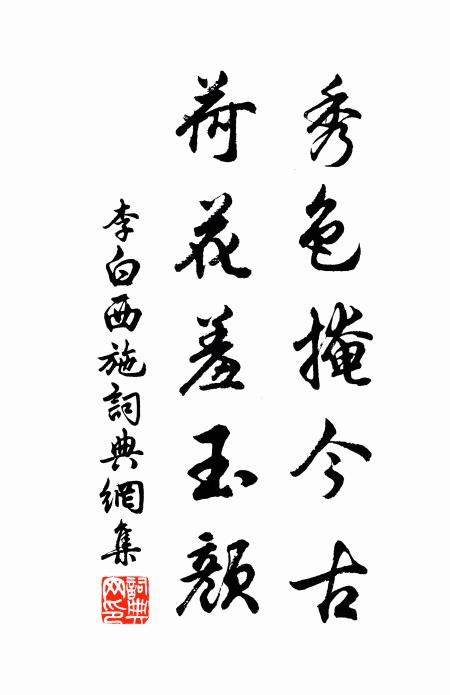 秀色掩今古
荷花羞玉顏
李白西施詞典網集